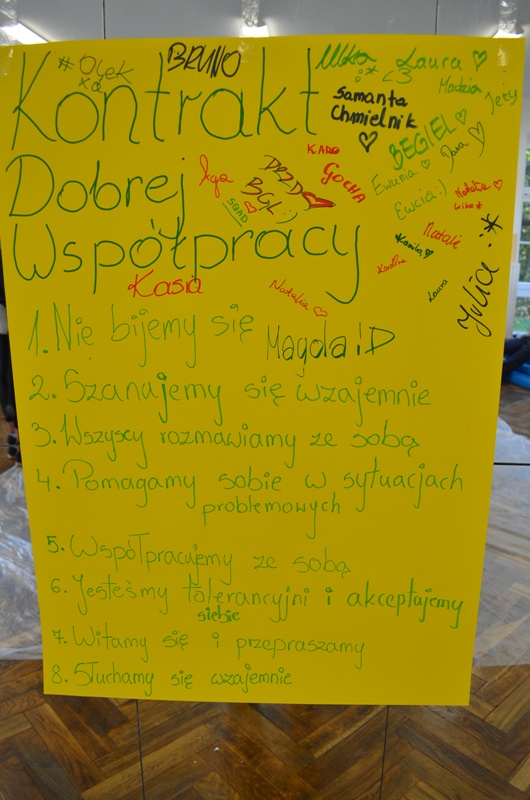 #OLEK
BRUNO
Milka :* <3
Laura
Madzia
Jerzy
Kontrakt
Samanta
Chmielnik
BEGIEL
Daria
Dobrej
Iga
KARO
GOCHA
Ewunia
Ewcia:)
Natalia
Wika*
Współpracy
Natalie
Kamila
Karolina
Laura
Julia :*
Kasia
Natalia
1. Nie bijemy się
Magda :D
2. Szanujemy się wzajemnie
3. Wszyscy rozmawiamy ze sobą
4. Pomagamy sobie w sytuacjach
problemowych
5. Współpracujemy ze sobą
6. Jesteśmy tolerancyjni i akceptujemy
siebie
7. Witamy się i przepraszamy
8. Słuchamy się wzajemnie